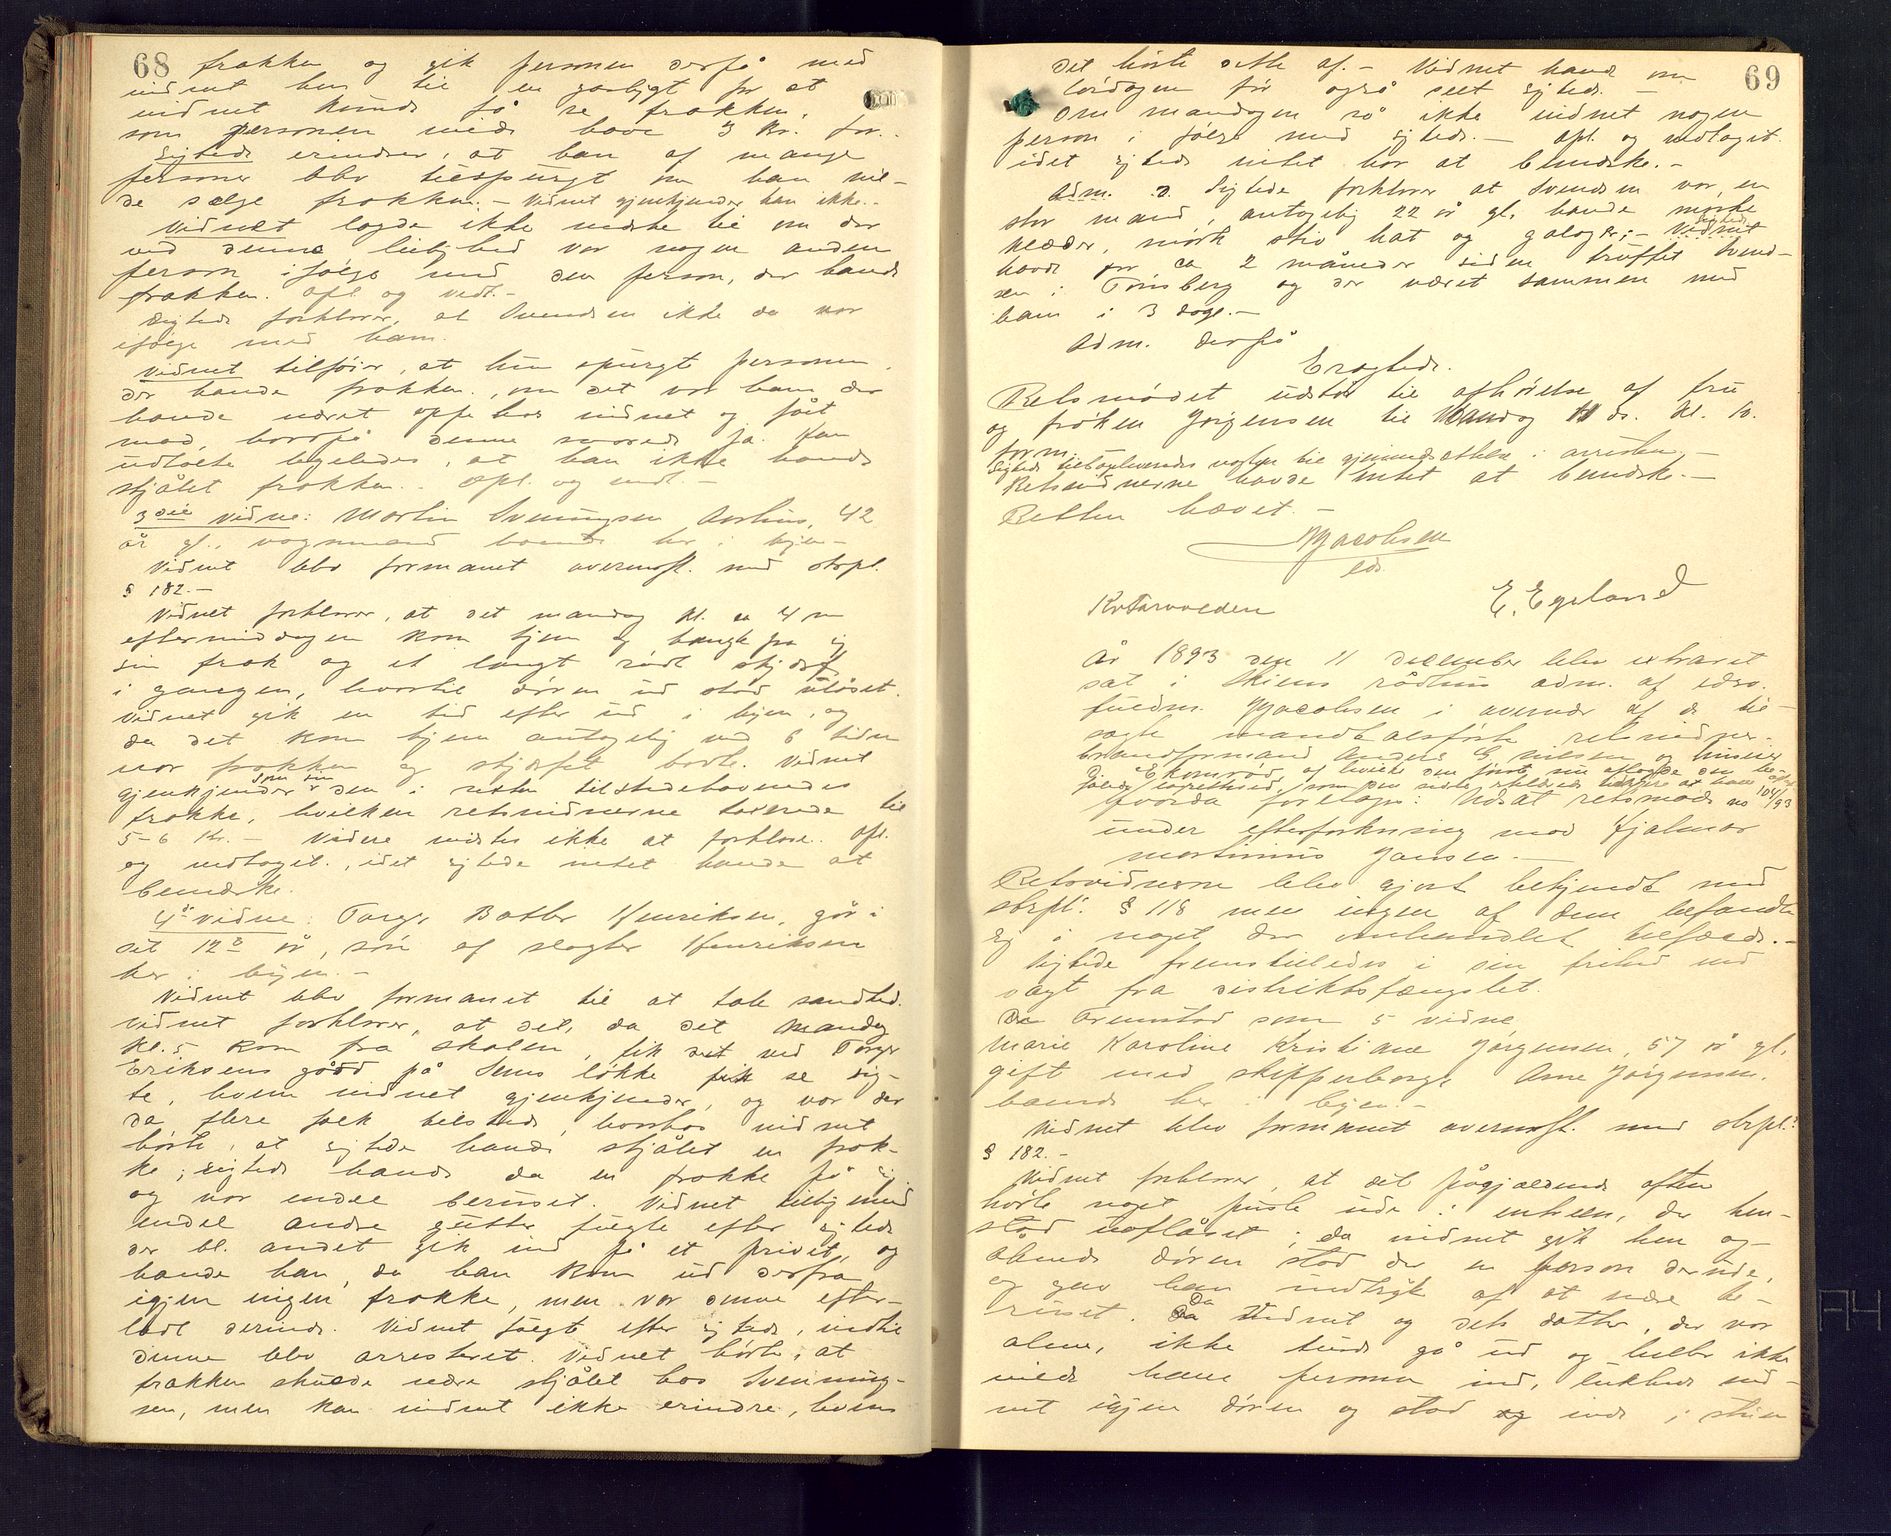 68
frakken og gik personen derpå med
vidnet hen til en gaslygt for at
vidnet kunde få se frakken,
som personen vilde have 3 kr. for.-
Sigtede erindrer, at han af mange
personer blev tilspurgt om han vil-
de sælge frakken.- Vidnet gjenkjender han ikke.-
Vidnet lagde ikke mærke til om der
ved denne leilighed var nogen anden
person ifølge med den person, der havde
frakken. Opl. og vedt.-
Sigtede forklarer, at Svendsen ikke da var
ifølge med ham.
Vidnet tilføier, at hun spurgt personen,
der havde frakken, om det var ham der
havde været oppe hos vidnet og fået
mad, hvorpå denne svarede ja. Han
udtalte ligeledes, at han ikke havde
stjålet frakken.- Opl. og vedt.-
3die vidne: Martin Svenningsen Aarhus, 42
år gl., vognmand boende her i byen.-
Vidnet blev formanet overensst. med strpl.
§ 182.-
Vidnet forklarer, at det mandag kl. ca 4 m
eftermiddagen kom hjem og hængte fra sig
sin frak og et langt rødt skjærf
i gangen, hvortil døren ud stod ulåset.
Vidnet gik en tid efter ud i byen, og
da det kom hjem antagelig ved 6 tiden
var frakken og skjærfet borte. Vidnet
gjenkjender som sin den i retten tilstedeværende
frakke, hvilken retsvidnerne taxerede til
5-6 kr.- Videre vidstes ikke at forklare. Opl.
og vedtaget, idet sigtede intet havde at
bemærke.
4de vidne: Torge Batler Henriksen, går i
sit 12te år, søn af slagter Henriksen
her i byen.-
Vidnet blev formanet til at tale sandhed.
Vidnet forklarer, at det, da det mandag
kl. 5 kom fra skolen, fik det ved Torger
Eriksens gård på Lens løkke se sig-
te, hvem vidnet gjenkjender, og var der
da flere folk tilstede, hvorhos vidnet
hørte, at sigtede havde stjålet en frak-
ke; sigtede havde da en frakke på sig
og var endel beruset. Vidnet tilligemed
endel andre gutter fulgte efter sigtede
der bl. andet gik ind på et privet, og
havde han, da han kom ud derfra
igjen ingen frakke, men var denne efter-
ladt derinde. Vidnet fulgte efter sigtede, indtil
denne blev arresteret. Vidnet hørte, at
frakken skulde være stjålet hos Svenning-
sen, men kan vidnet ikke erindre, hvem
69
det hørte dette af.- Vidnet havde om
lørdagen før også seet sigtede.-
Om mandagen så ikke vidnet nogen
person i følge med sigtede.- Opl. og vedtaget
idet sigtede intet har at bemærke.-
Adm. Sigtede forklarer at Svendsen var en
stor mand, antagelig 22 år gl. havde mørke
klæder, mørk stiv hat og galoger;- Vidnet sigtede
havde for ca 2 måneder siden truffet Svend-
sen i Tønsberg og der været sammen med
ham i 3 dage.-
Adm. derpå
Eragtede.
Retsmødet udstår til afhørelse af fru
og frøken Jørgensen til Mandag 11 ds. kl. 10.
form.
Sigtede tilbageleveredes vagten til gjenindsættelse i arresten.-
Retsvidnerne havde intet at bemærke.-
Retten hævet.-
MJacobsen
eds.
KrTarvolden
E. Egeland
År 1893 den 11 december blev extraret
sat i Skiens rådhus adm. af edsv.
fuldm. MJacobsen i overvær af de til-
sagte mandtalsførte retsvidner.
brandformand Anders G. Nilsen og
som den sidste
Hvorda foretages: Udsat retsmøde no 104/93
under efterforskning mod Hjalmar
Martinius Jansen.-
Retsvidnerne blev gjort bekjendt med
strpl. § 118 men ingen af dem befandt
sig i noget der omhandlet tilfælde.-
Sigtede fremstilledes i sin frihed med
vagt fra distriktsfængslet.
Da fremstod som 5 vidne
Marie Karoline Kristiane Jørgensen, 57 år gl.
gift med skipperborger Arne Jørgensen,
boende her i byen.-
Vidnet blev formanet overensst. med strpl.
§ 182.-
Vidnet forklarer, at det pågjældende aften
hørte noget pusle ude i entreen, der hen-
stod uaflåset; da vidnet gik hen og
åbnede døren stod der en person derude,
og gav han indtryk af at være be-
ruset. Da vidnet og dets datter, der var
alene, ikke turde gå ud og heller ikke
vilde have personen ind, lukkede vid-
net igjen døren og stod inde i stuen